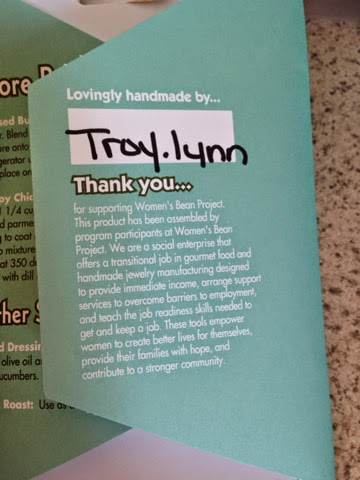 Lovingly handmade by...
Troy.lynn
Thank you...
for supporting Women's Bean Project.
This product has been assembled by
program participants at Women's Bean
Project. We are a social enterprise that
offers a transitional job in gourmet food and
handmade jewelry manufacturing designed
to provide immediate income, arrange support
services to overcome barriers to employment,
and teach the job readiness skills needed to
get and keep a job. These tools empower
women to create better lives for themselves,
provide their families with hope, and
contribute to a stronger community.
ore
sed Bu
r. Blend
ore onto
gerator u
place on
py Chic
1 1/4 cu
d parme
g to coat
o mixture
at 350 d
with dill
ther S
d Dressin
olive oil a
cucumbers.
Roast: Use as